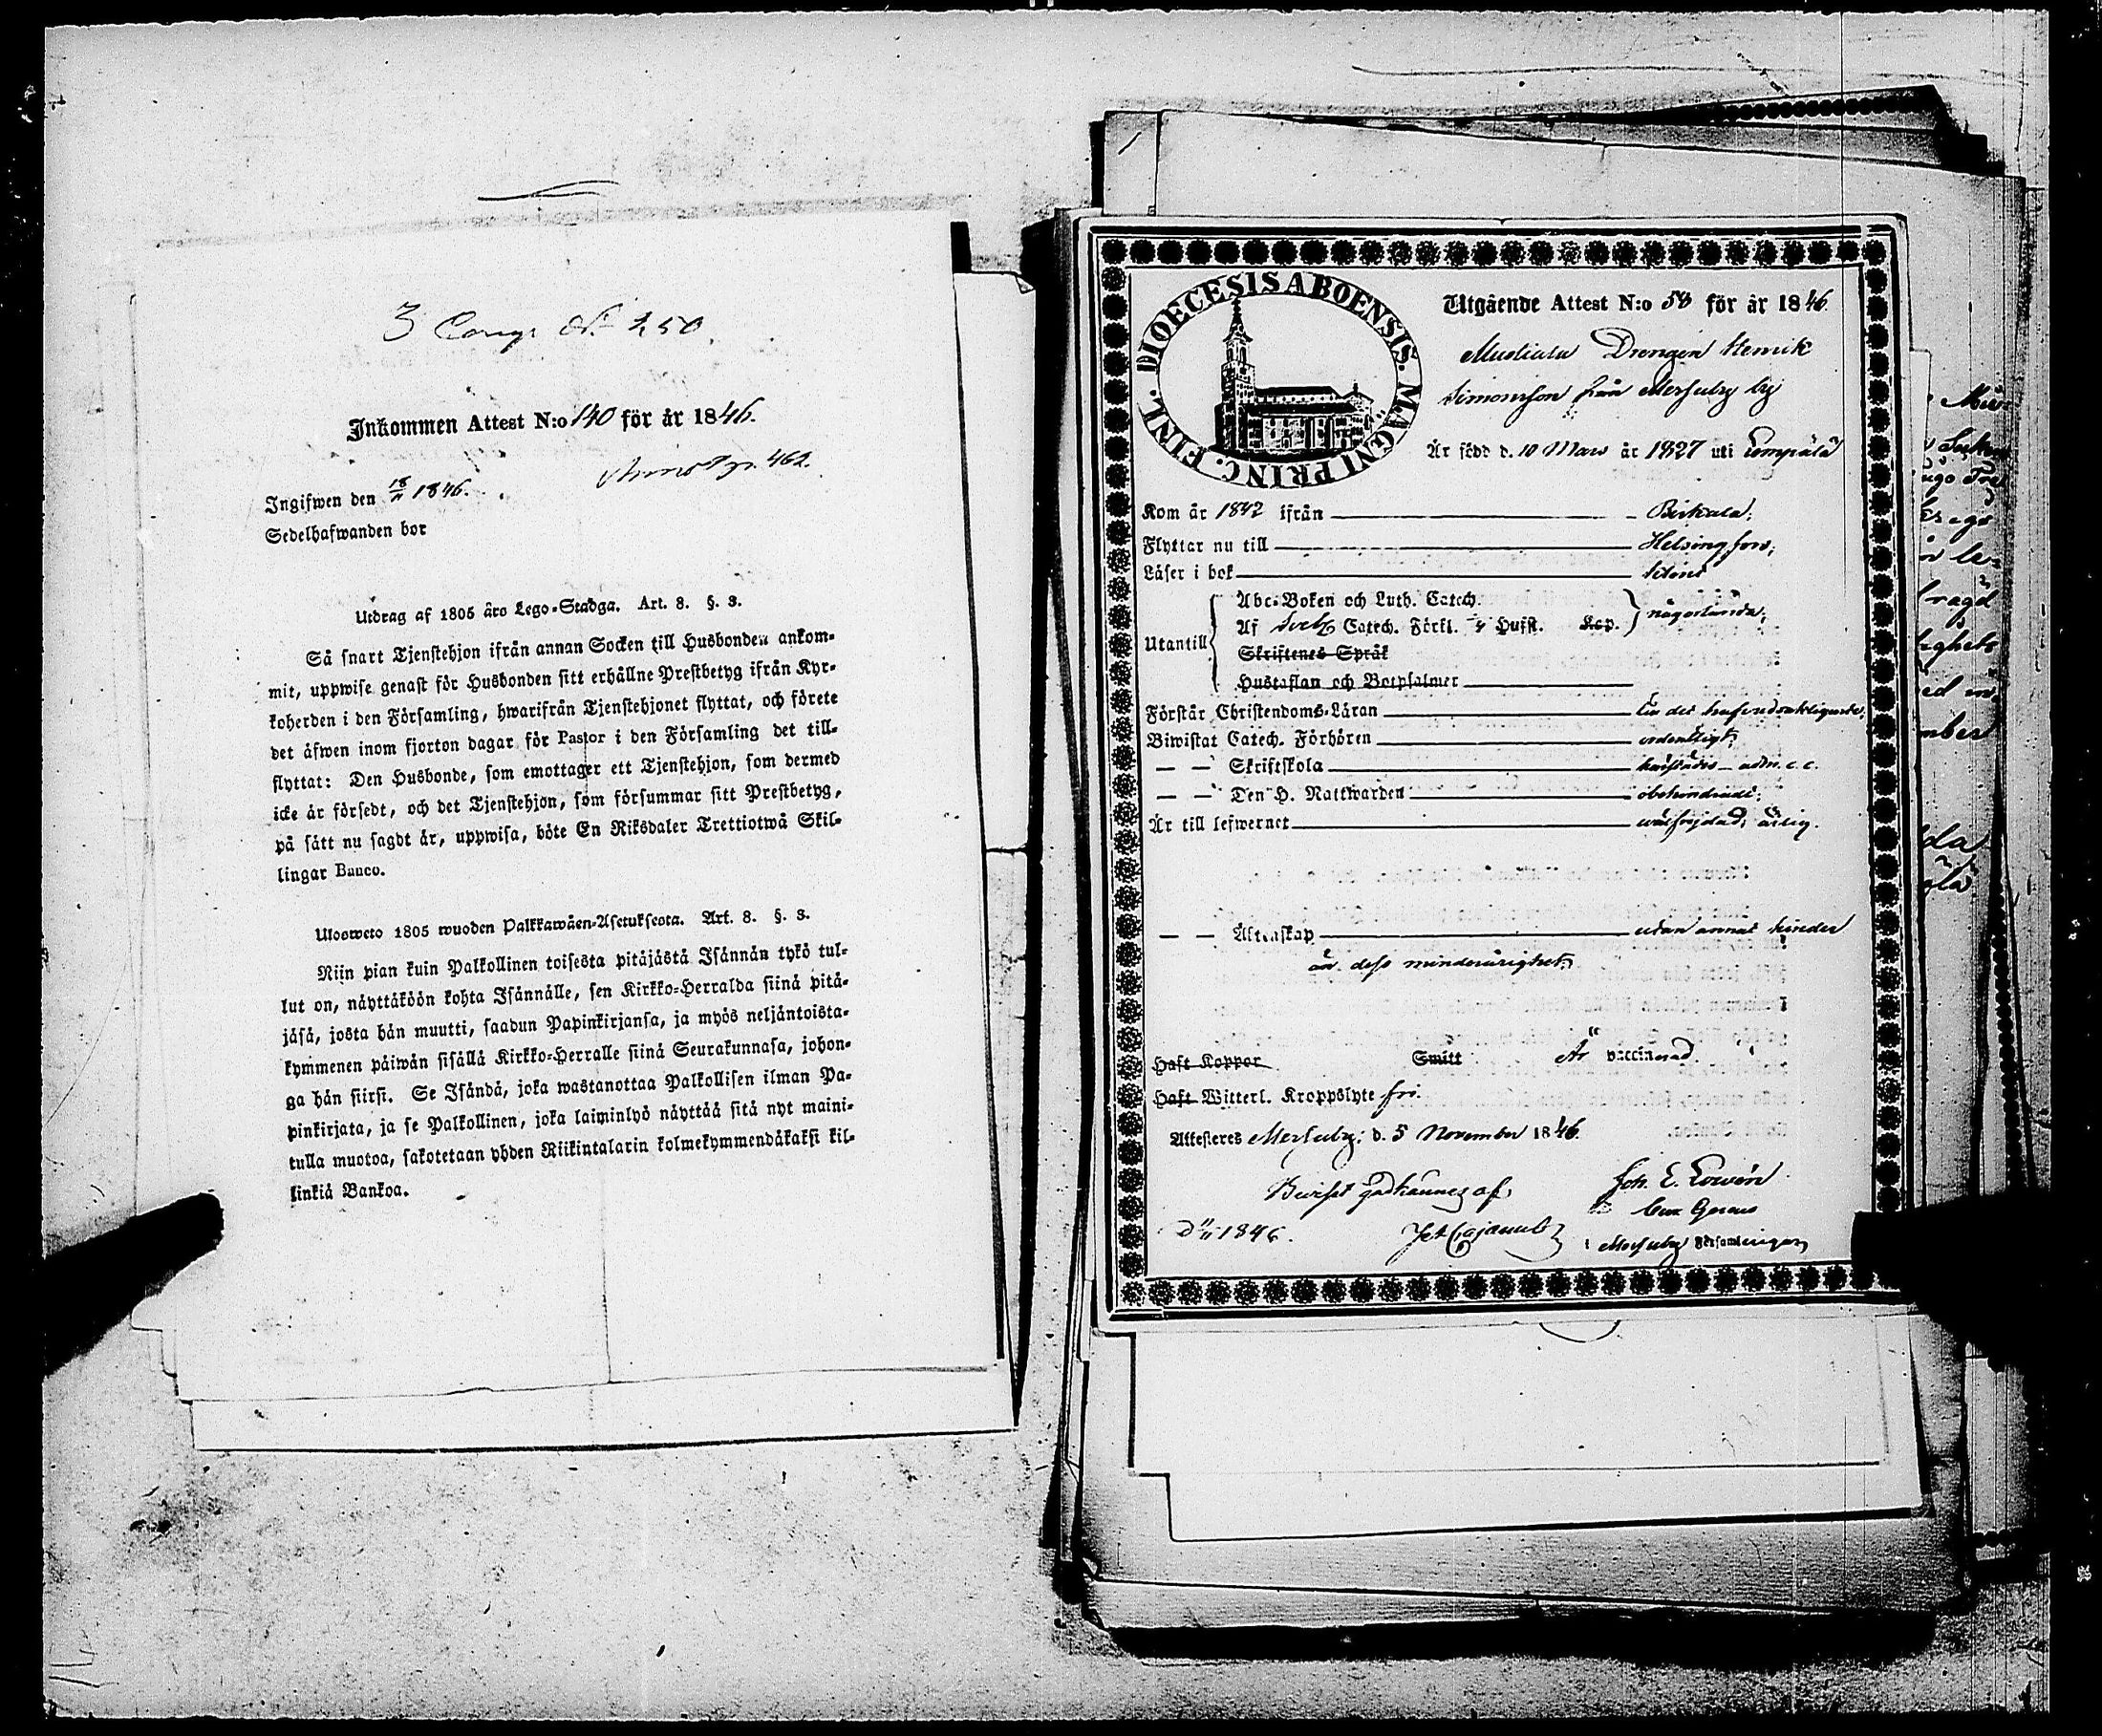 3 Comp. No 250.
Inkommen Attest N:o 140 för år 1846.
Ingifwen den 18/11 1846.
462.
Sedelhafwanden bor
Utdrag af 1805 års Lego-Stadga. Art. 8. §. 3.
Så snart Tjenstehjon ifrån annan Socken till Husbonden ankom-
mit, uppwise genast för Husbonden sitt erhållne Prestbetyg ifrån Kyr-
koherden i den Församling, hwarifrån Tjenstehjonet flyttat, och förete
det äfwen inom fjorton dagar för Pastor i den Församling det till-
flyttat: Den Husbonde, som emottager ett Tjenstehjon, som dermed
icke är försedt, och det Tjenstehjon, som försummar sitt Prestbetyg,
på sätt nu sagdt är, uppwisa, böte En Riksdaler Trettiotwå Skil-
lingar Banco.
Ulosweto 1805 wuoden Palkkawäen-Asetuksesta. Art. 8. §. 3.
Niin pian kuin Palkollinen toisesta pitäjästä Isännän tykö tul-
lut on, näyttäköön kohta Isännälle, sen Kirkko-Herralda siinä pitä-
jäsä, josta hän muutti, saadun Papinkirjansa, ja myös neljäntoista-
kymmenen päiwän sisällä Kirkko-Herralle siinä Seurakunnasa, johon-
ga hän siirsi. Se Isändä, joka wastanottaa Palkollisen ilman Pa-
pinkirjata, ja se Palkollinen, joka laiminlyö näyttää sitä nyt maini-
tulla muotoa, sakotetaan yhden Riikintalarin kolmekymmendäkaksi kil-
linkiä Bankoa.
DIOECESIS ABOENSIS. MAGNI PRINC. FINL.
Utgående Attest N:o 58 för år 1846.
Drengen Henrik
Simonsson från Messuby by
Är född d. 10 Mars år 1827 uti Lempälä
Kom år 1842 ifrån Birkala;
Flyttar nu till Helsingfors;
Läser i bok
Abc-Boken och Luth. Catech.
Af Sveb. Catech. Förkl. Hufst. Kap. någorlunda;
Utantill
Skriftenes Språk
Hustaflan och Botpsalmer
Förstår Christendoms-Läran till det hufvudsakligaste;
Biwistat Catech. Förhören ordentligt;
— — Skriftskola härstädes – adm. c. c.
— — Den H. Nattwarden obehindradt;
Är till lefwernet wälfrejdad; ärlig.
— — Äktenskap utan annat hinder
än dess minderårighet;
Haft Koppor Smitt Är vaccinerad.
Haft Witterl. Kroppslyte fri.
Attesteres Messuby; d. 5 November 1846.
Beviset godkännes af;
Joh. E. Lovén
D. 11/11 1846.
Messuby Församlingar